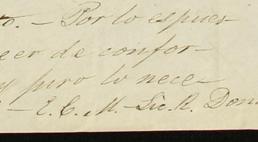 to. - Por lo espues
eer de confor-
y juro lo nece-
- E. C. M. - Lic. R. Dom